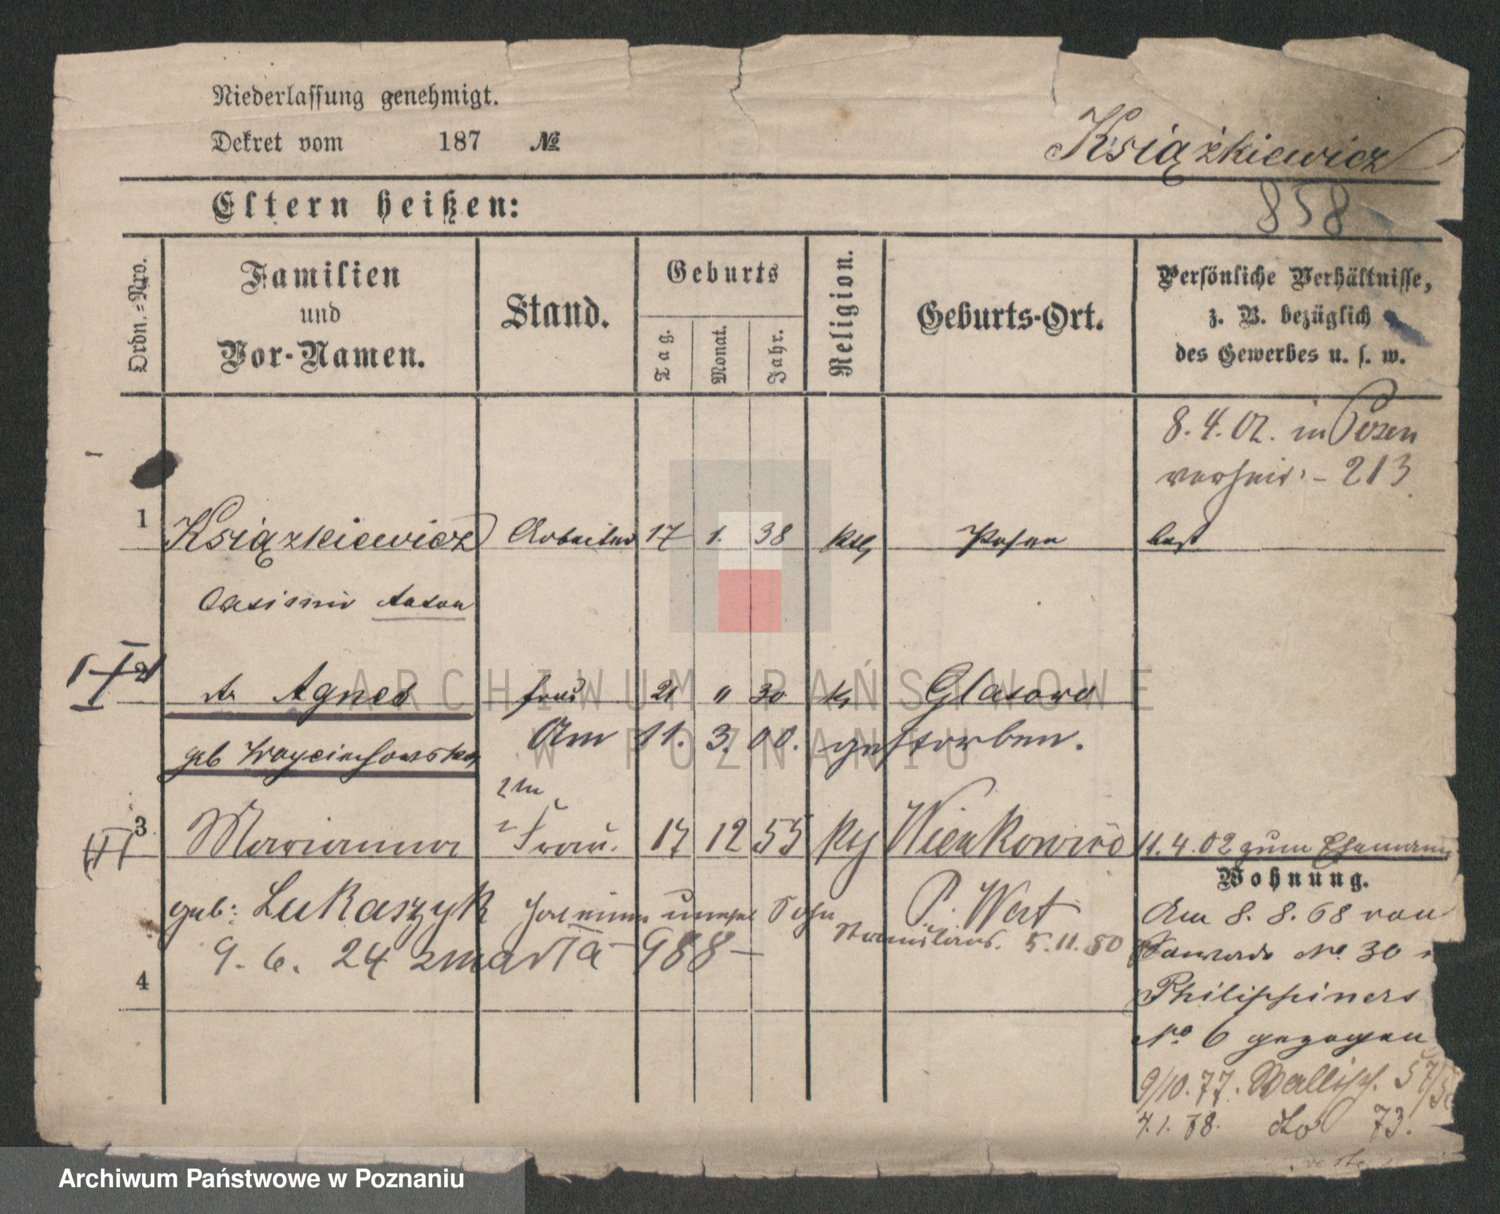 Niederlassung genehmigt.
Dekret vom 187 №
Książkiewicz
858
Eltern heißen:
Ordn.-Nro.
Familien
und
Vor-Namen.
Stand.
Geburts
Tag.
Monat.
Jahr.
Religion.
Geburts-Ort.
Persönliche Verhältnisse,
z. B. bezüglich
des Gewerbes u. s. w.
8. 4. 02. in Posen
verheir. - 213
1 Książkiewicz Arbeiter 17 1. 38 Posen
Casimir Anton
2 Agnes Frau 21 " 30 Glasowo
Am 11. 3. 00. gestorben.
geb Woyciechowska
3 Marianna Frau. 17 12 55 Wienkowiec 11. 4. 02 zum Ehemann
Wohnung.
geb: Lukaszyk P. Wert
Am 8. 8. 68 von
5. 11. 80
9. 6. 24 zmarła - 988 -
No 30
4
Philippiners
No 6 gezogen
9/10. 77. Wallisch. 57/58
7. 1. 78. dto 73.
ARCHIWUM PAŃSTWOWE
W POZNANIU
Archiwum Państwowe w Poznaniu